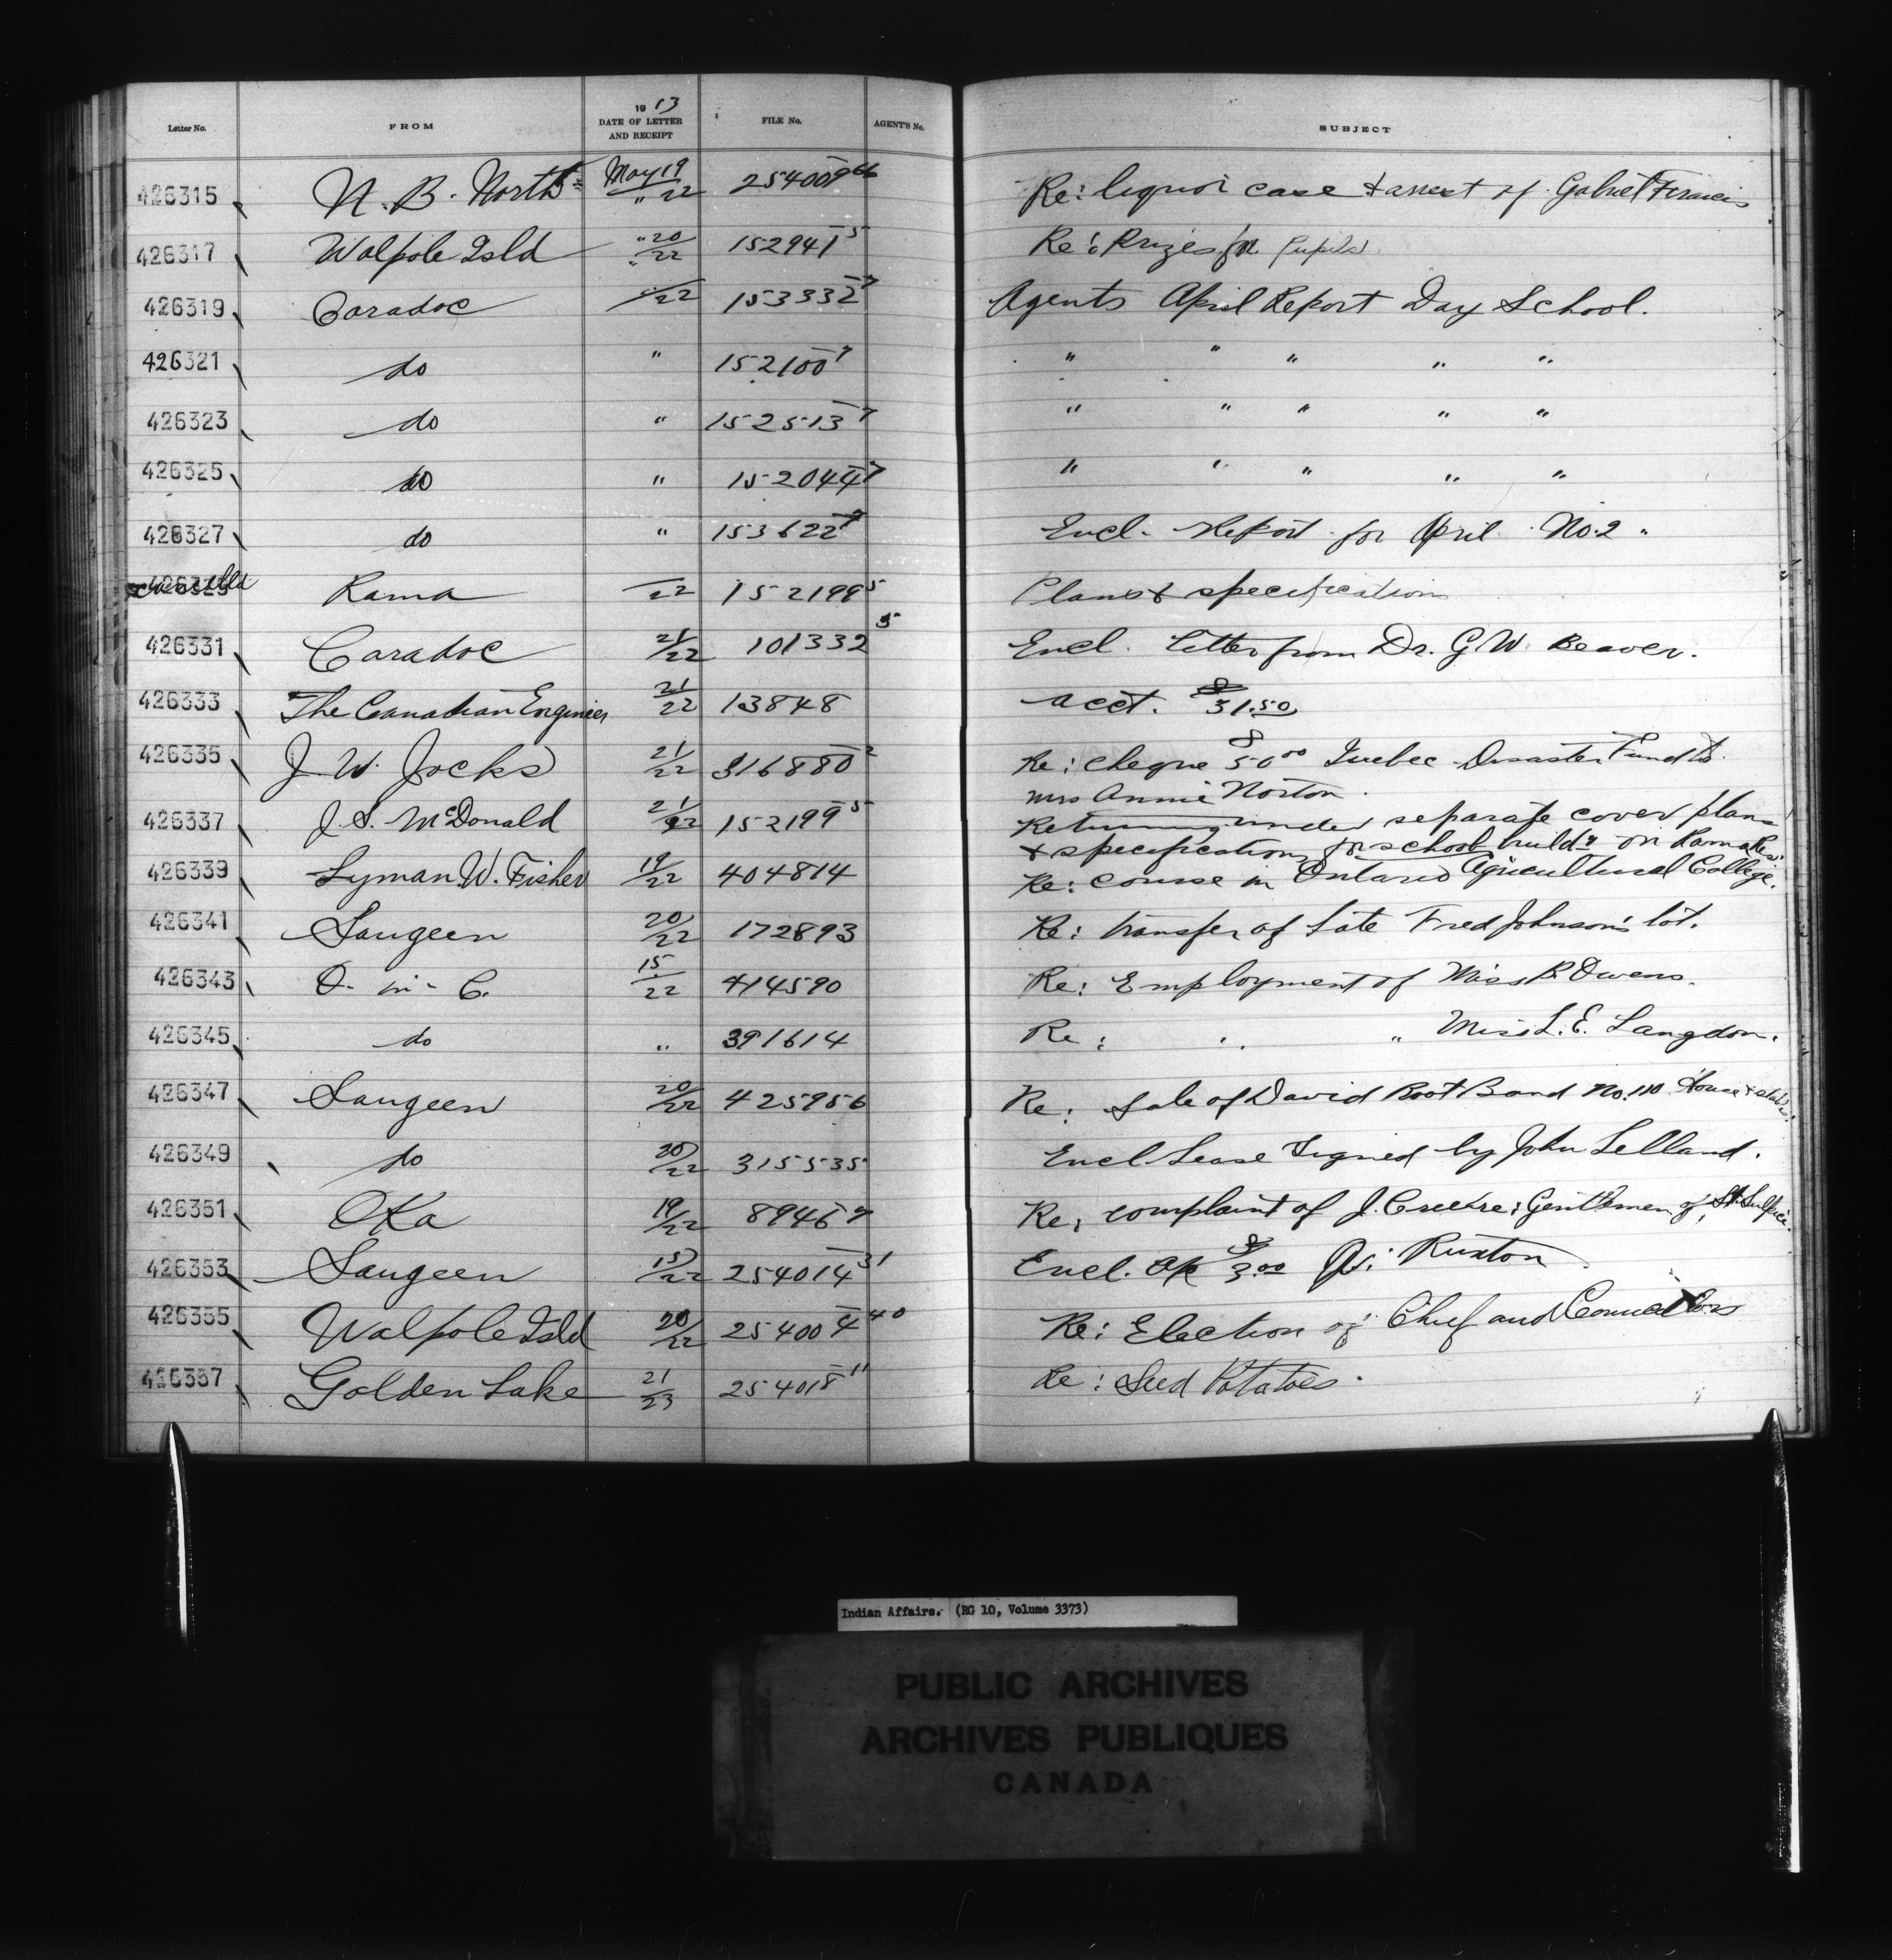 Letter No. FROM 1913 DATE OF LETTER AND RECEIPT FILE No. AGENT'S No. SUBJECT
426315 N. B. North May 19 " 22 254009 66 Re: liquor case & arrest of Gabriel Francis
426317 Walpole Isld " 20 " 22 152941 5 Re: Prizes for Pupils
426319 Caradoc 22 153332 7 Agents April Report Day School.
426321 do " 152100 7 " " " " "
426323 do " 152513 7 " " " " "
426325 do " 152044 7 " " " " "
426327 do " 153622 Encl. Report for April No. 2.
Cancelled Rama 22 152199 5 Plans & specifications
426331 Caradoc 21/22 101332 5 Encl. Letter from Dr. G W. Beaver.
426333 The Canadian Engineer 21/22 13848 acct. $31.50
426335 J. W. Jocks 21/22 316880 2 Re: cheque $50 00 Quebec Disaster Fund to
Mrs Annie Norton.
426337 J. S. McDonald 21/22 152199 5 Returning under separate cover plans
& specifications for school build'g on Rama Res.
426339 Lyman W. Fisher 19/22 404814 Re: course in Ontario Agricultural College.
426341 Saugeen 20/22 172893 Re: transfer of Late Fred Johnson's lot.
426343 O- in- C. 15/22 414590 Re: Employment of Miss B. Owens.
426345 do " 391614 Re: " " Miss L. E. Langdon.
426347 Saugeen 20/22 425956 Re: Sale of David Root Band No. 110 House & stable.
426349 do 20/22 315535 Encl. Lease Signed by John Lelland.
426351 Oka 19/22 8946 Re: complaint of J. Gentlemen of St. Sulpice.
426353 Saugeen 15/22 254014 31 Encl. $3.00 Ruxton
426355 Walpole Isld 20/22 254004 40 Re: Election of Chief and Councillors
426357 Golden Lake 21/23 254018 11 Re: Seed Potatoes.
Indian Affairs. (RG 10, Volume 3373)
PUBLIC ARCHIVES
ARCHIVES PUBLIQUES
CANADA